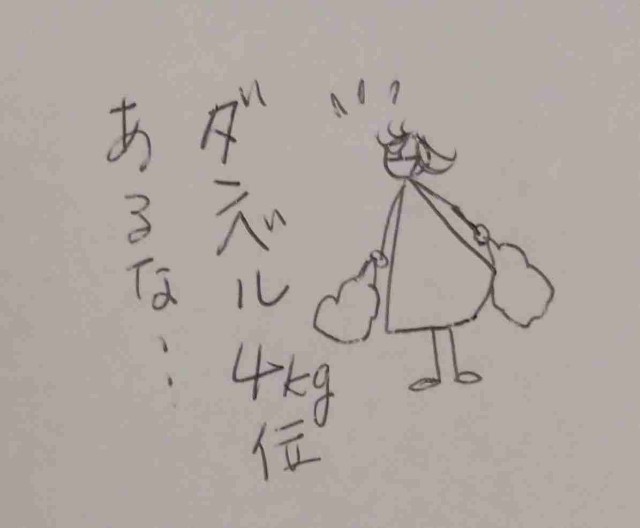 ダンベル4kg位
あるな…